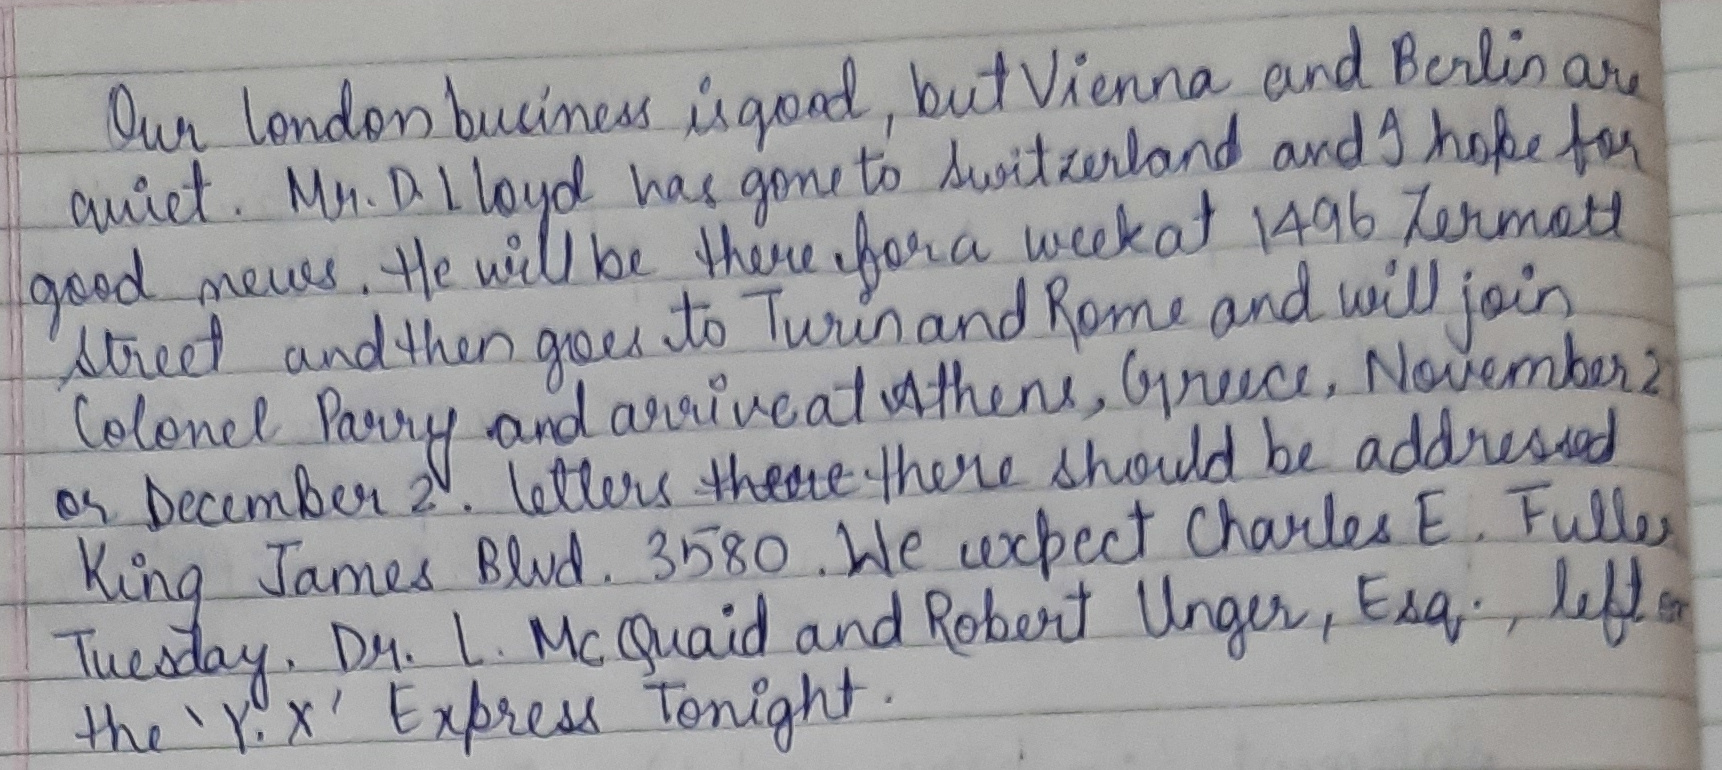 Our london buciness is good, but Vienna and Berlin are
quiet. Mr. D. Lloyd has gone to Switzerland and I hope for
good news. He will be there for a week at 1496 Zermott
street and then goes to Turin and Rome and will join
Colonel Parry and arrive at Athens, Greece, November 2
or December 2. letters there there should be addressed
King James Blvd. 3580. We expect Charles E. Fuller
Tuesday. Dr. L. McQuaid and Robert Unger, Esq., left on
the 'Y.X' Express Tonight.